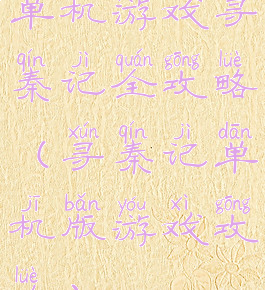 单机游戏寻
qín jì quán gōng lüè
秦记全攻略
xún qín jì dān
(寻秦记单
jī bǎn yóu xì gōng
机版游戏攻
lüè